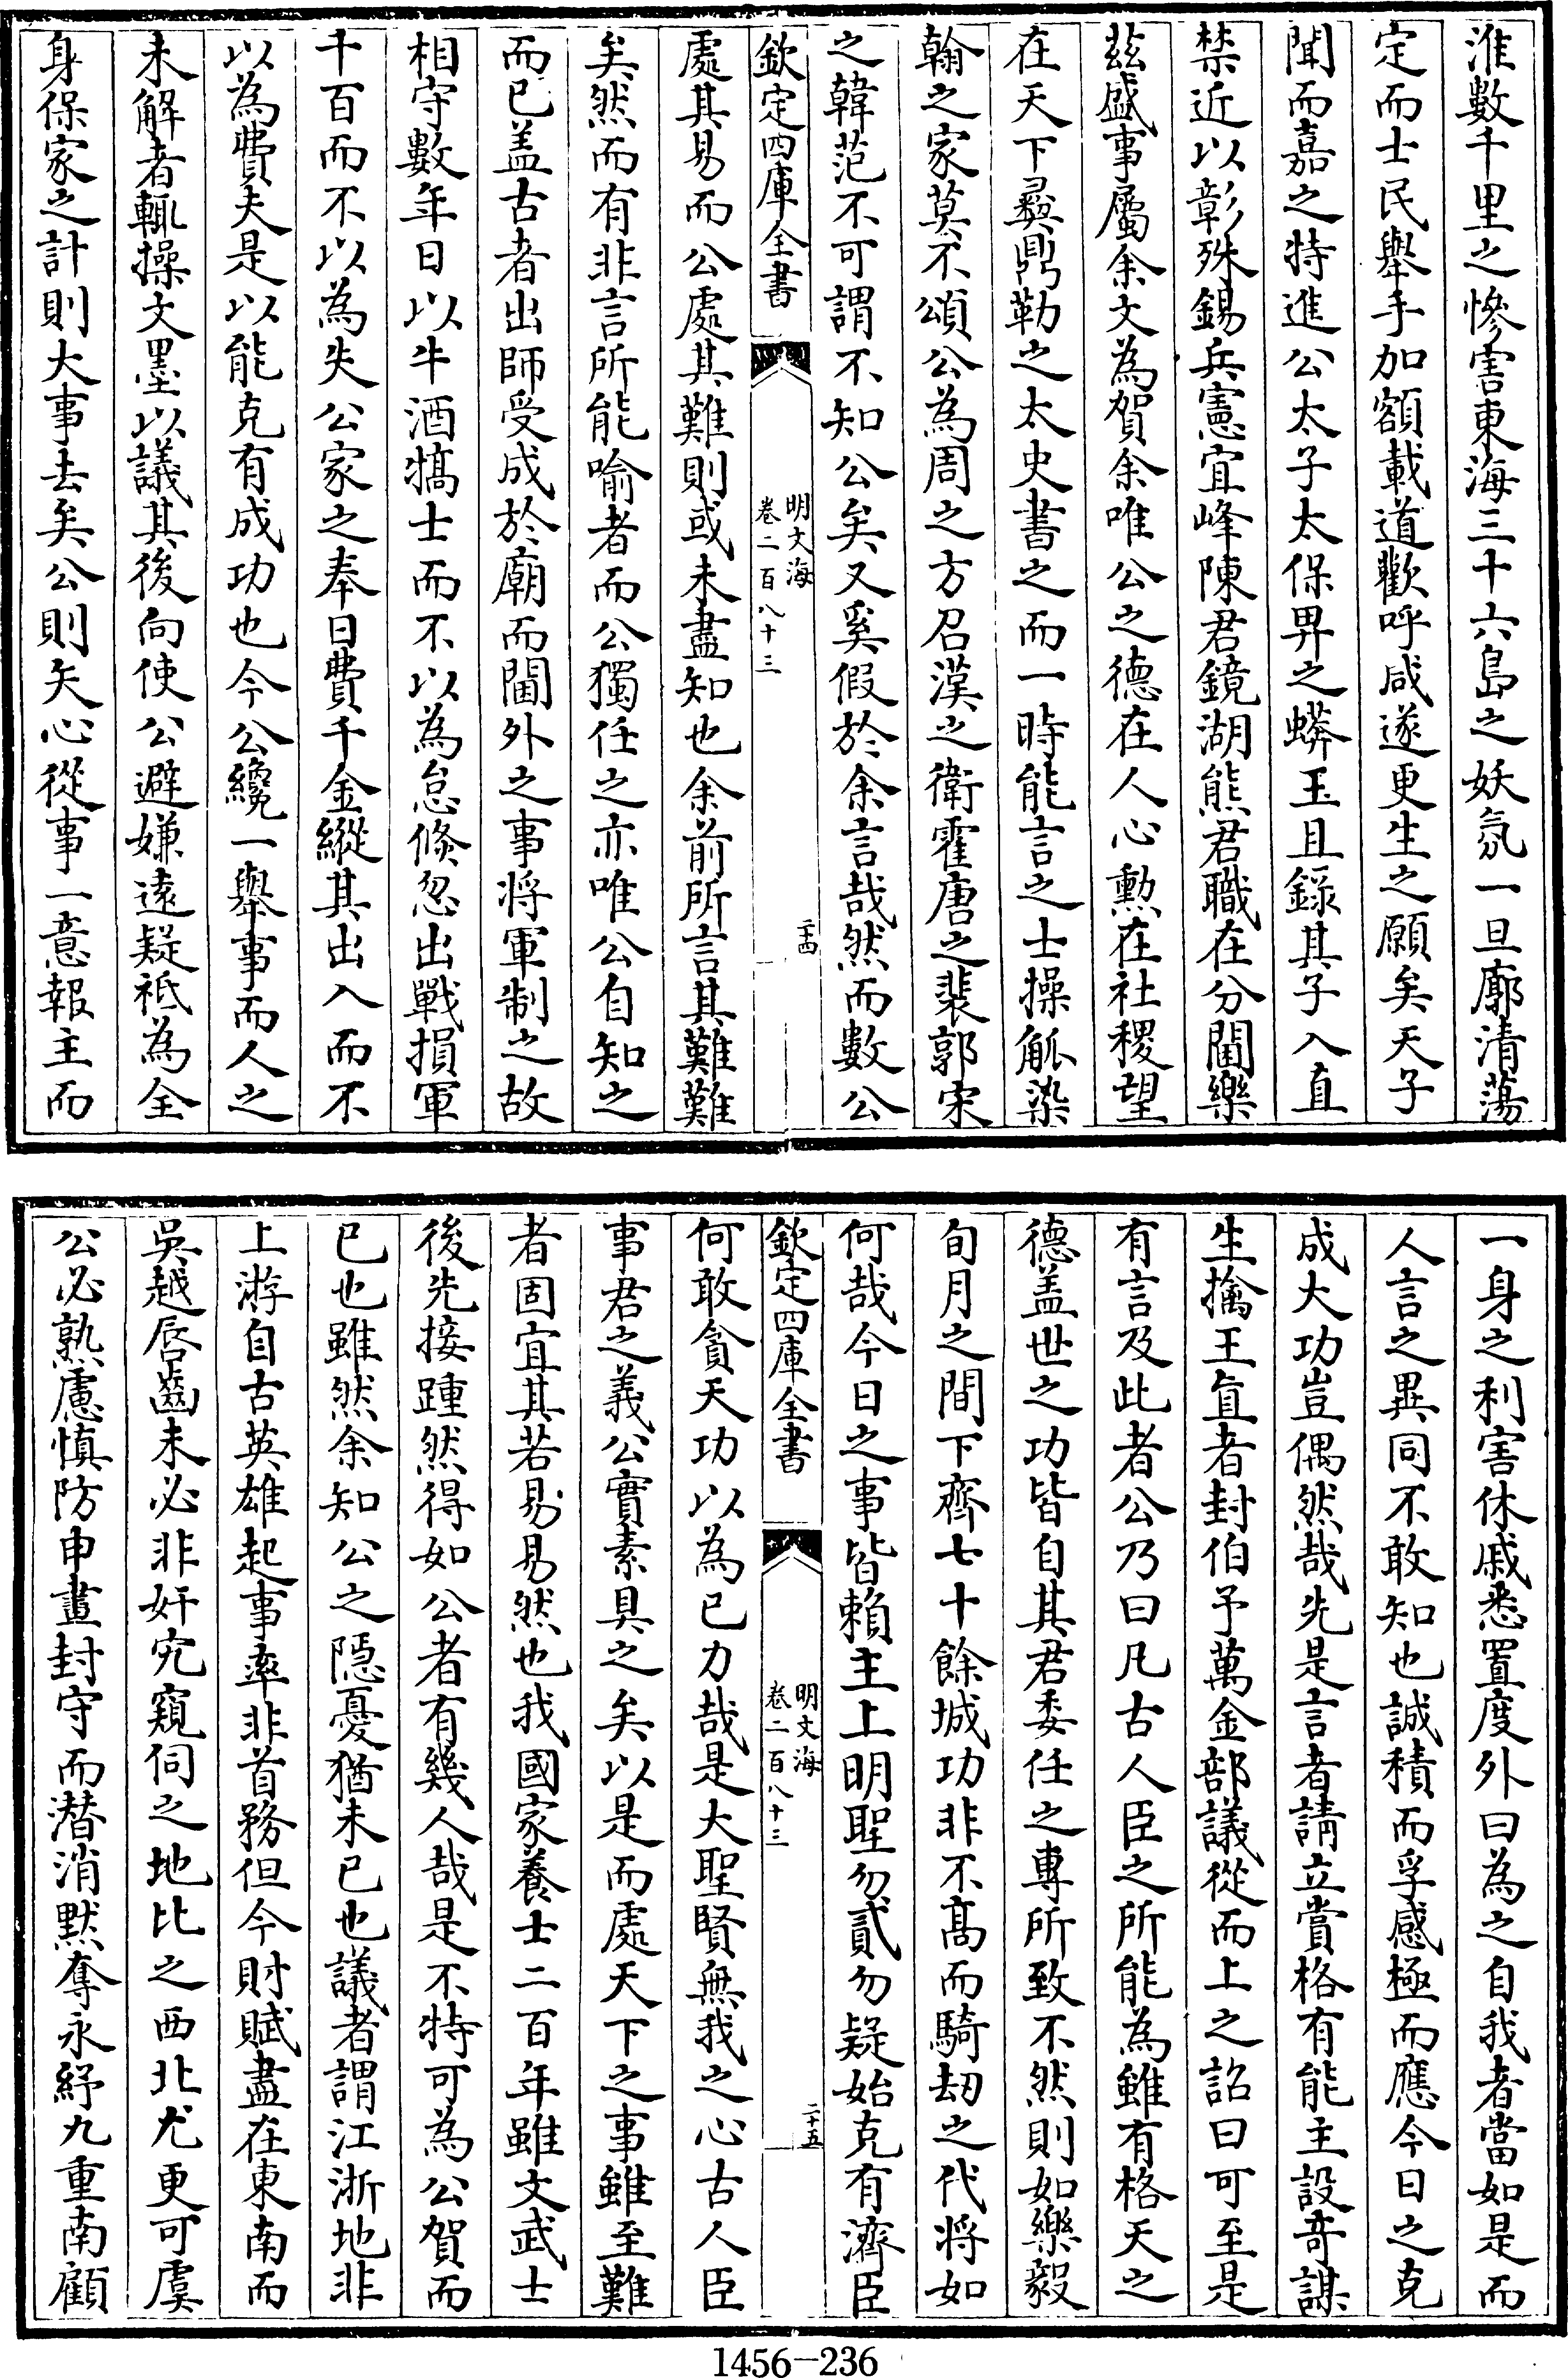 淮數千里之慘害東海三十六島之妖氛一旦廓清蕩
定而士民舉手加額載道歡呼咸遂更生之願矣天子
聞而嘉之特進公太子太保畀之蟒玉且錄其子入直
禁近以彰殊錫兵憲宜峰陳君鏡湖熊君職在分閫樂
茲盛事屬余文為賀余唯公之德在人心勲在社稷望
在天下彞鼎勒之太史書之而一時能言之士操觚染
翰之家莫不頌公為周之方召漢之衛霍唐之裴郭宋
之韓范不可謂不知公矣又奚假於余言哉然而數公
欽定四庫全書
明文海
卷二百八十三
二十四
處其易而公處其難則或未盡知也余前所言其難難
矣然而有非言所能喻者而公獨任之亦唯公自知之
而已盖古者出師受成於廟而閫外之事将軍制之故
相守數年日以牛酒犒士而不以為怠倏忽出戰損軍
千百而不以為失公家之奉日費千金縱其出入而不
以為費夫是以能克有成功也今公纔一舉事而人之
未解者輒操文墨以議其後向使公避嫌遠疑祗為全
身保家之計則大事去矣公則矢心從事一意報主而
一身之利害休戚悉置度外曰為之自我者當如是而
人言之異同不敢知也誠積而孚感極而應今日之克
成大功豈偶然哉先是言者請立賞格有能主設奇謀
生擒王直者封伯予萬金部議從而上之詔曰可至是
有言及此者公乃曰凡古人臣之所能為雖有格天之
德盖世之功皆自其君委任之專所致不然則如樂毅
旬月之間下齊七十餘城功非不髙而騎刼之代将如
何哉今日之事皆賴主上明聖勿貳勿疑始克有濟臣
欽定四庫全書
明文海
卷二百八十三
二十五
何敢貪天功以為已力哉是大聖賢無我之心古人臣
事君之義公實素具之矣以是而處天下之事雖至難
者固宜其若易易然也我國家養士二百年雖文武士
後先接踵然得如公者有幾人哉是不特可為公賀而
已也雖然余知公之隱憂猶未已也議者謂江浙地非
上游自古英雄起事率非首務但今財賦盡在東南而
吳越唇齒未必非奸宄窺伺之地比之西北尤更可虞
公必熟慮慎防申畫封守而潜消黙奪永紓九重南顧
1456-236